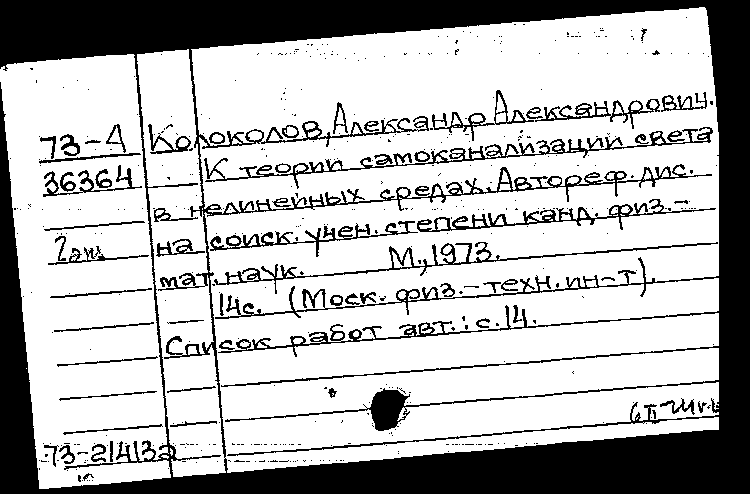 73-А Колоколов, Александр Александрович.
36364 К теории самоканализации света
в нелинейных средах. Автореф. дис.
2 экз на соиск. учен. степени канд. физ.-
мат. наук. М., 1973.
14с. (Моск. физ.-техн. ин-т).
Список работ авт.: с.14.
73-21413а